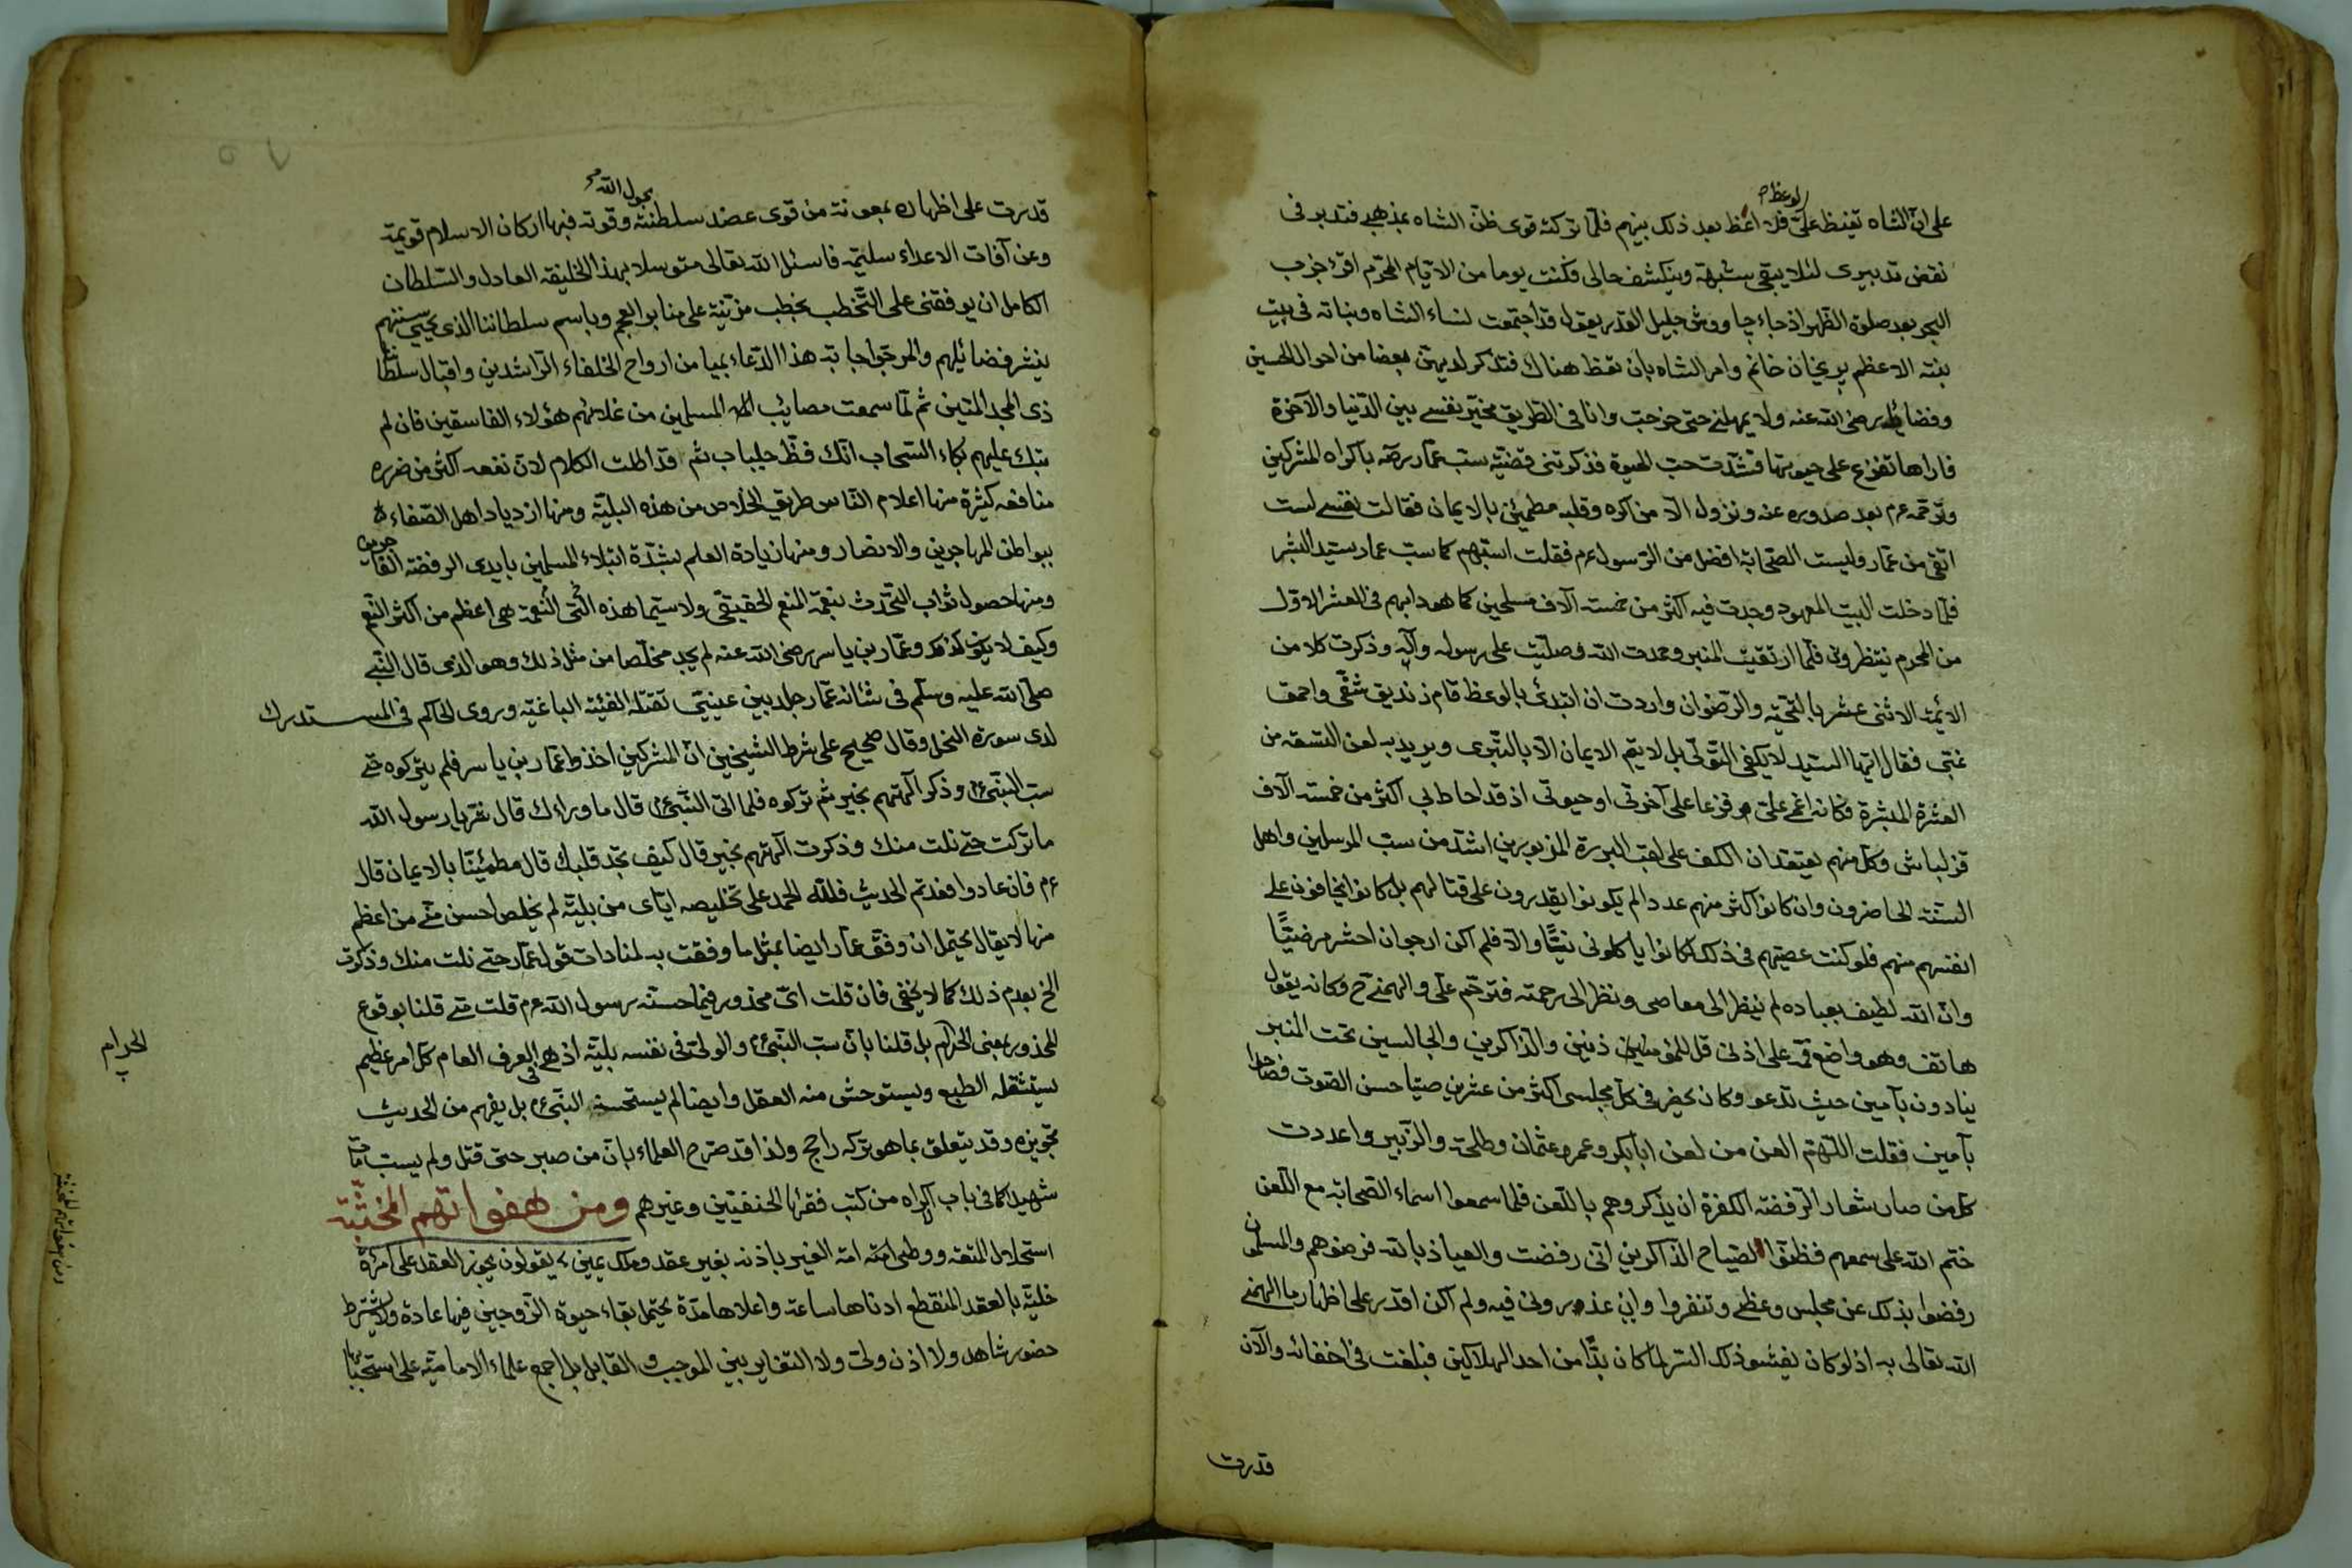 الوعظ
على انّ الشاه تغيظ علىّ فلا اعظ بعد ذلك بينهم فلمّا تركته قوى ظنّ الشاه بمذهبى فتدبر فى
نقض تدبيرى لئلا يبقى شبهة وينكشف حالى فكنت يوما من الايّام المحرّم اقرء حزب
البحر بعد صلوة الظهر اذ جاء چاووش جليل القدر يقول قد اجتمعت نساء الشاه وبناته فى بيت
بنته الاعظم پريخان خانم وامر الشاه بان تعظ هناك فتذكر لديهنّ بعضا من احوال الحسين
وفضائله رضى الله عنه ولا يمهلنى حتى خرجت وانا فى الطريق مخيّر نفسى بين الدنيا والآخرة
فاراها تفزع على حيوتها فشدّت حب الحيوة فذكرتنى قضيّة سب عمّار رضه باكراه المشركين
وترحّمه عم بعد صدوره عنه ونزول الّا من اكره وقلبه مطمئن بالايمان فقالت نفسى لست
اتقى من عمّار وليست الصّحابة افضل من الرسول عم فقلت اسبّهم كما سب عمار سيد البشر
فلمّا دخلت البيت المعهود وجدت فيه اكثر من خمسة آلاف مسلحين كما هو دابهم فى العشر الاول
من المحرم ينتظرونى فلمّا ارتقيت المنبر وحمدت الله وصلّيت على رسوله وآله وذكرت كلا من
الائمّة الاثنى عشر بالتحيّة والرّضوان واردت ان ابتدئ بالوعظ قام زنديق شقّى واحمق
غبّى فقال ايّها السيد لا يكفى التّولّى بل لا يتم الايمان الّا بالتبّرى ويريد به لعن التسعة من
العشرة المبشرة فكانه اغمى علىّ فزعا على آخرتى او حيوتى اذ قد احاط بى اكثر من خمسة آلاف
قزلباش وكلّ منهم يعتقد ان الكف على لعب البررة المزبورين اشدّ من سبّ المرسلين واهل
السّنة الحاضرون وان كانوا اكثر منهم عددا لم يكونوا يقدرون على قتالهم بل كانوا يخافون على
انفسهم منهم فلو كنت عصيتهم فى ذلك لكانوا ياكلونى نيّئا والّا فلم اكن ارجوان احشر مرضيّا
وانّ الله لطيف بعباده لم ينظر الى معاصى ونظر الى رحمته فترحّم علىّ والهمنى ح وكانه يقول
هاتف وهو واضع فمه على اذنى قل للمؤمنين ذنين والذّاكرين والجالسين تحت المنبر
ينادون بآمين حيث تدعو وكان يحضر فى كلّ مجلسى اكثر من عشرين صيتا حسن الصّوت فصاحوا
بآمين فقلت اللّهمّ العن من لعن ابابكر وعمر وعثمان وطلحة والزّبير واعددت
كل من صار شعار الرّفضة الكفرة ان يذكروهم باللّعن فلما سمعوا اسماء الصّحابة مع اللّعن
ختم الله على سمعهم فظنّوا لصياح الذّاكرين انّى رفضت والعياذ بالله فرضوهم والمسلمون
رفضوا بذلك عن مجلس وعظى وتنفروا واين عذرى ولى فيه ولم اكن اقدر على اظهار ما الهمنى
الله تعالى به اذ لو كان يفشو ذلك السّر لما كان بدّا من احد الهلاكين فبلغت فى اخفائه والآن
قدرت
بحول الله
قدرت على اظهاره بمعونة من قوى عضد سلطنته وقوته فبها اركان الاسلام قويمة
وعن آفات الاعداء سليمة فاسئل الله تعالى متوسلا بهذا الخليفة العادل والسّلطان
الكامل ان يوفقنى على التّخطب بخطب مزيّنة على منابر العجم وباسم سلطاننا الذى يحيى سننهم
ينشر فضائلهم والمرجّو اجابة هذا الدّعاء بميامن ارواح الخلفاء الرّاشدين واقبال سلطاننا
ذى المجد المتين ثم لمّا سمعت مصائب المسلمين من غلامهم هؤلاء الفاسقين فان لم
تبك عليهم بكاء السّحاب انّك فظّ جلباب ثم قد اطلت الكلام لانّ نفعه اكثر من ضرره
منافعه كثيرة منها اعلام النّاس طريق الخلاص من هذه البليّة ومنها ازدياد اهل الصّفاء
ببواطن المهاجرين والانصار ومنها زيادة العلم بشدّة ابتلاء المسلمين بايدى الرفضة الفاجرين
ومنها حصول ثواب التّحدّث بنعمة المنعم الحقيقى ولا سيّما هذه الّتى النّعمة هى اعظم من اكثر النّعم
وكيف لا يكون كذلك وعمّار بن ياسر رضى الله عنه لم يجد مخلّصا من مثل ذلك وهو الذى قال النّبى
صلّى الله عليه وسلّم فى شانه عمّار جلد بين عينيّ تقتله الفئة الباغيّة وروى الحاكم فى المستدرك
لدى سورة النحل وقال صحيح على شرط الشيخين انّ المشركين اخذوا عمّار بن ياسر فلم يتركوه حتى
سبّ النبّى عم وذكر آلهتهم بخير ثم تركوه فلما اتى النّبى عم قال ما وراءك قال شرّ يا رسول الله
ما تركت حتى نلت منك وذكرت آلهتهم بخير قال كيف تجد قلبك قال مطمئنّا بالايمان قال
عم فان عادوا فعد تم الحديث فللّه الحمد على تخليصه ايّاى من بليّة لم يخلص احسن منّى من اعظم
منها لا يقال يحتمل ان وفّق عمّار ايضا بمثل ما وفقت به لمنادات قول عمّار حتى نلت منك وذكرت
الخ بعدم ذلك كما لا يخفى فان قلت اىّ محذور فيما حسّنه رسول الله عم قلت متى قلنا بوقوع
المحذور بمعنى الحرام بل قلنا بانّ سب النّبى عم والولى فى نفسه بليّة اذ هى فى العرف العام كلّ امر عظيم
يستثقله الطبع ويستوحش منه العقل وايضا لم يستحسنه النبّى عم بل يفهم من الحديث
تجويزه وقد يتعلق بما هو تركه راجح ولذا قد صرّح العلماء بانّ من صبر حتى قتل ولم يسب مات
شهيدا كما فى باب اكراه من كتب فقهائ الحنفيّين وغيرهم ومن هفواتهم المخبّثة
استحلال المتعة ووطى امته امة الغير باذنه بغير عقد وملك يمين يقولون يجوز العقد على امرئة
خليّة بالعقد المنقطع ادناها ساعة واعلاها مدّة يحتمل بقاء حيوة الزّوجين فيها عادة ولا يشترط
حضور شاهد ولا اذن ولىّ ولا التغاير بين الموجب والقابل بل اجمع علماء الاماميّة على استحبابها
الحرام